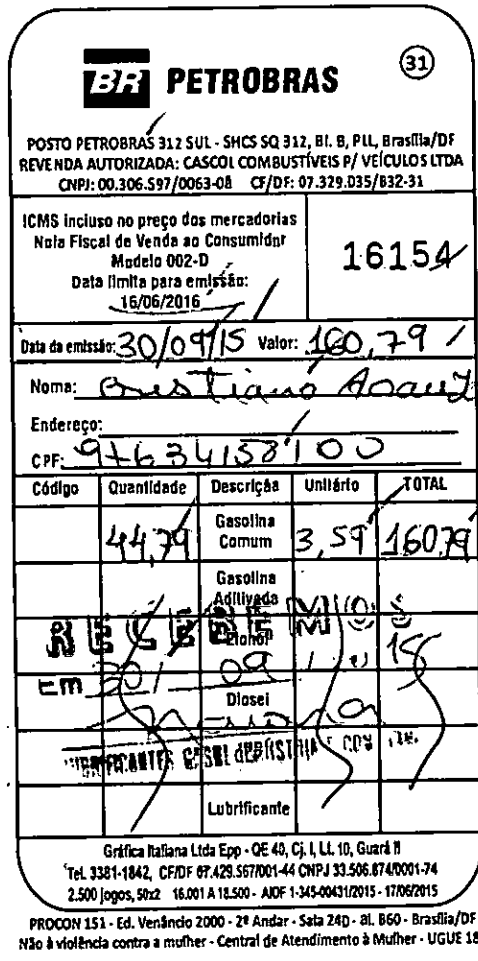 31
BR PETROBRAS
POSTO PETROBRAS 312 SUL - SHCS SQ 312, Bl. B, PLL, Brasília/DF
REVENDA AUTORIZADA: CASCOL COMBUSTÍVEIS P/ VEÍCULOS LTDA
CNPJ: 00.306.597/0063-08 CF/DF: 07.329.035/832-31
ICMS incluso no preço dos mercadorias
Nota Fiscal de Venda ao Consumidor
Modelo 002-D
Data limita para emissão:
16/06/2016
16154
Data da emissão: 30/09/15 Valor: 160,79
Noma: Cristiano
Endereço:
CPF: 97634158100
Código Quantidade Descrição Unitário TOTAL
44,79 Gasolina Comum 3,59 160,79
Gasolina Aditivada
RECEBEMOS
Etanol
Em 30/ 09 / 15
Diosel
LUBRIFICANTES
Lubrificante
Gráfica Italiana Ltda Epp - QE 40, Cj. I, Lt. 10, Guará II
Tel. 3381-1842, CF/DF 07.429.567/001-44 CNPJ 33.506.874/0001-74
2.500 jogos, 50x2 16.001 A 18.500 - AIDF 1-345-00431/2015 - 17/06/2015
PROCON 151 - Ed. Venâncio 2000 - 2º Andar - Sala 240 - Bl. B60 - Brasília/DF
Não à violência contra a mulher - Central de Atendimento à Mulher - LIGUE 18